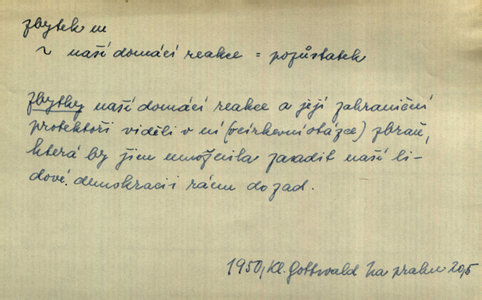 zbytek m
~ naší domácí reakce = pozůstatek
Zbytky naší domácí reakce a její zahraniční
protektoři viděli v ní (v církevní otázce) zbraň,
která by jim umožnila zasadit naší li-
dové demokracii ránu do zad.
1950, Kl. Gottwald Na prahu 205